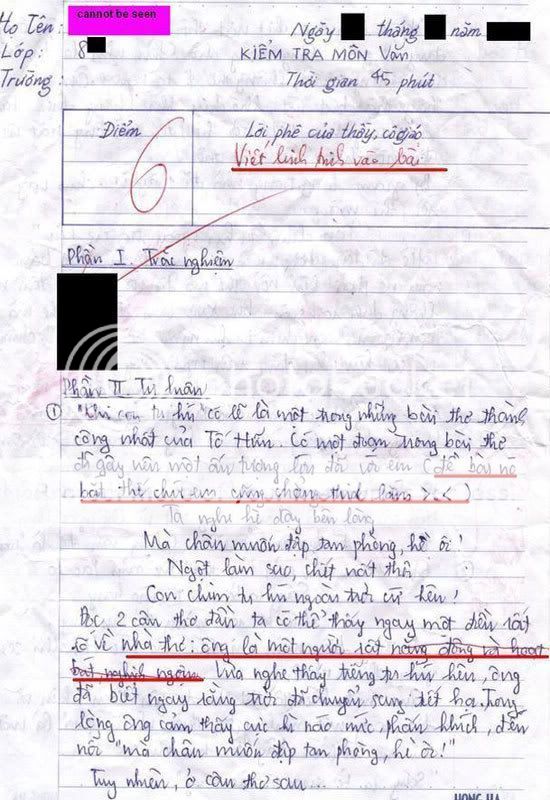 cannot be seen
Họ Tên:
Lớp: 8
Trường:
Ngày tháng năm
KIỂM TRA MÔN VĂN
Thời gian 45 phút
Điểm
6
Lời phê của thầy, cô giáo
Viết linh tinh vào bài
Phần I. Trắc nghiệm
Phần II. Tự luân
① "Khi con tu hú" có lẽ là một trong những bài thơ thành
công nhất của Tố Hữu. Có một đoạn trong bài thơ
đã gây nên một ấn tượng lớn đối với em (đề bài nó
bắt thế chứ em cũng chẳng thích lắm >.< )
Ta nghe hè dậy bên lòng
Mà chân muốn đập tan phòng, hè ôi!
Ngột làm sao, chết uất thôi
Con chim tu hú ngoài trời cứ kêu!
Đọc 2 câu thơ đầu ta có thể thấy ngay một điều rất
rõ về nhà thơ: ông là một người rất năng động và hoạt
bát, nghịch ngợm. Vừa nghe thấy tiếng tu hú kêu, ông
đã biết ngay rằng trời đã chuyển sang tiết hạ. Trong
lòng ông cảm thấy cực kì náo nức, phấn khích, đến
nỗi "mà chân muốn đập tan phòng, hè ôi!"
Tuy nhiên, ở câu thơ sau...
HONG HA